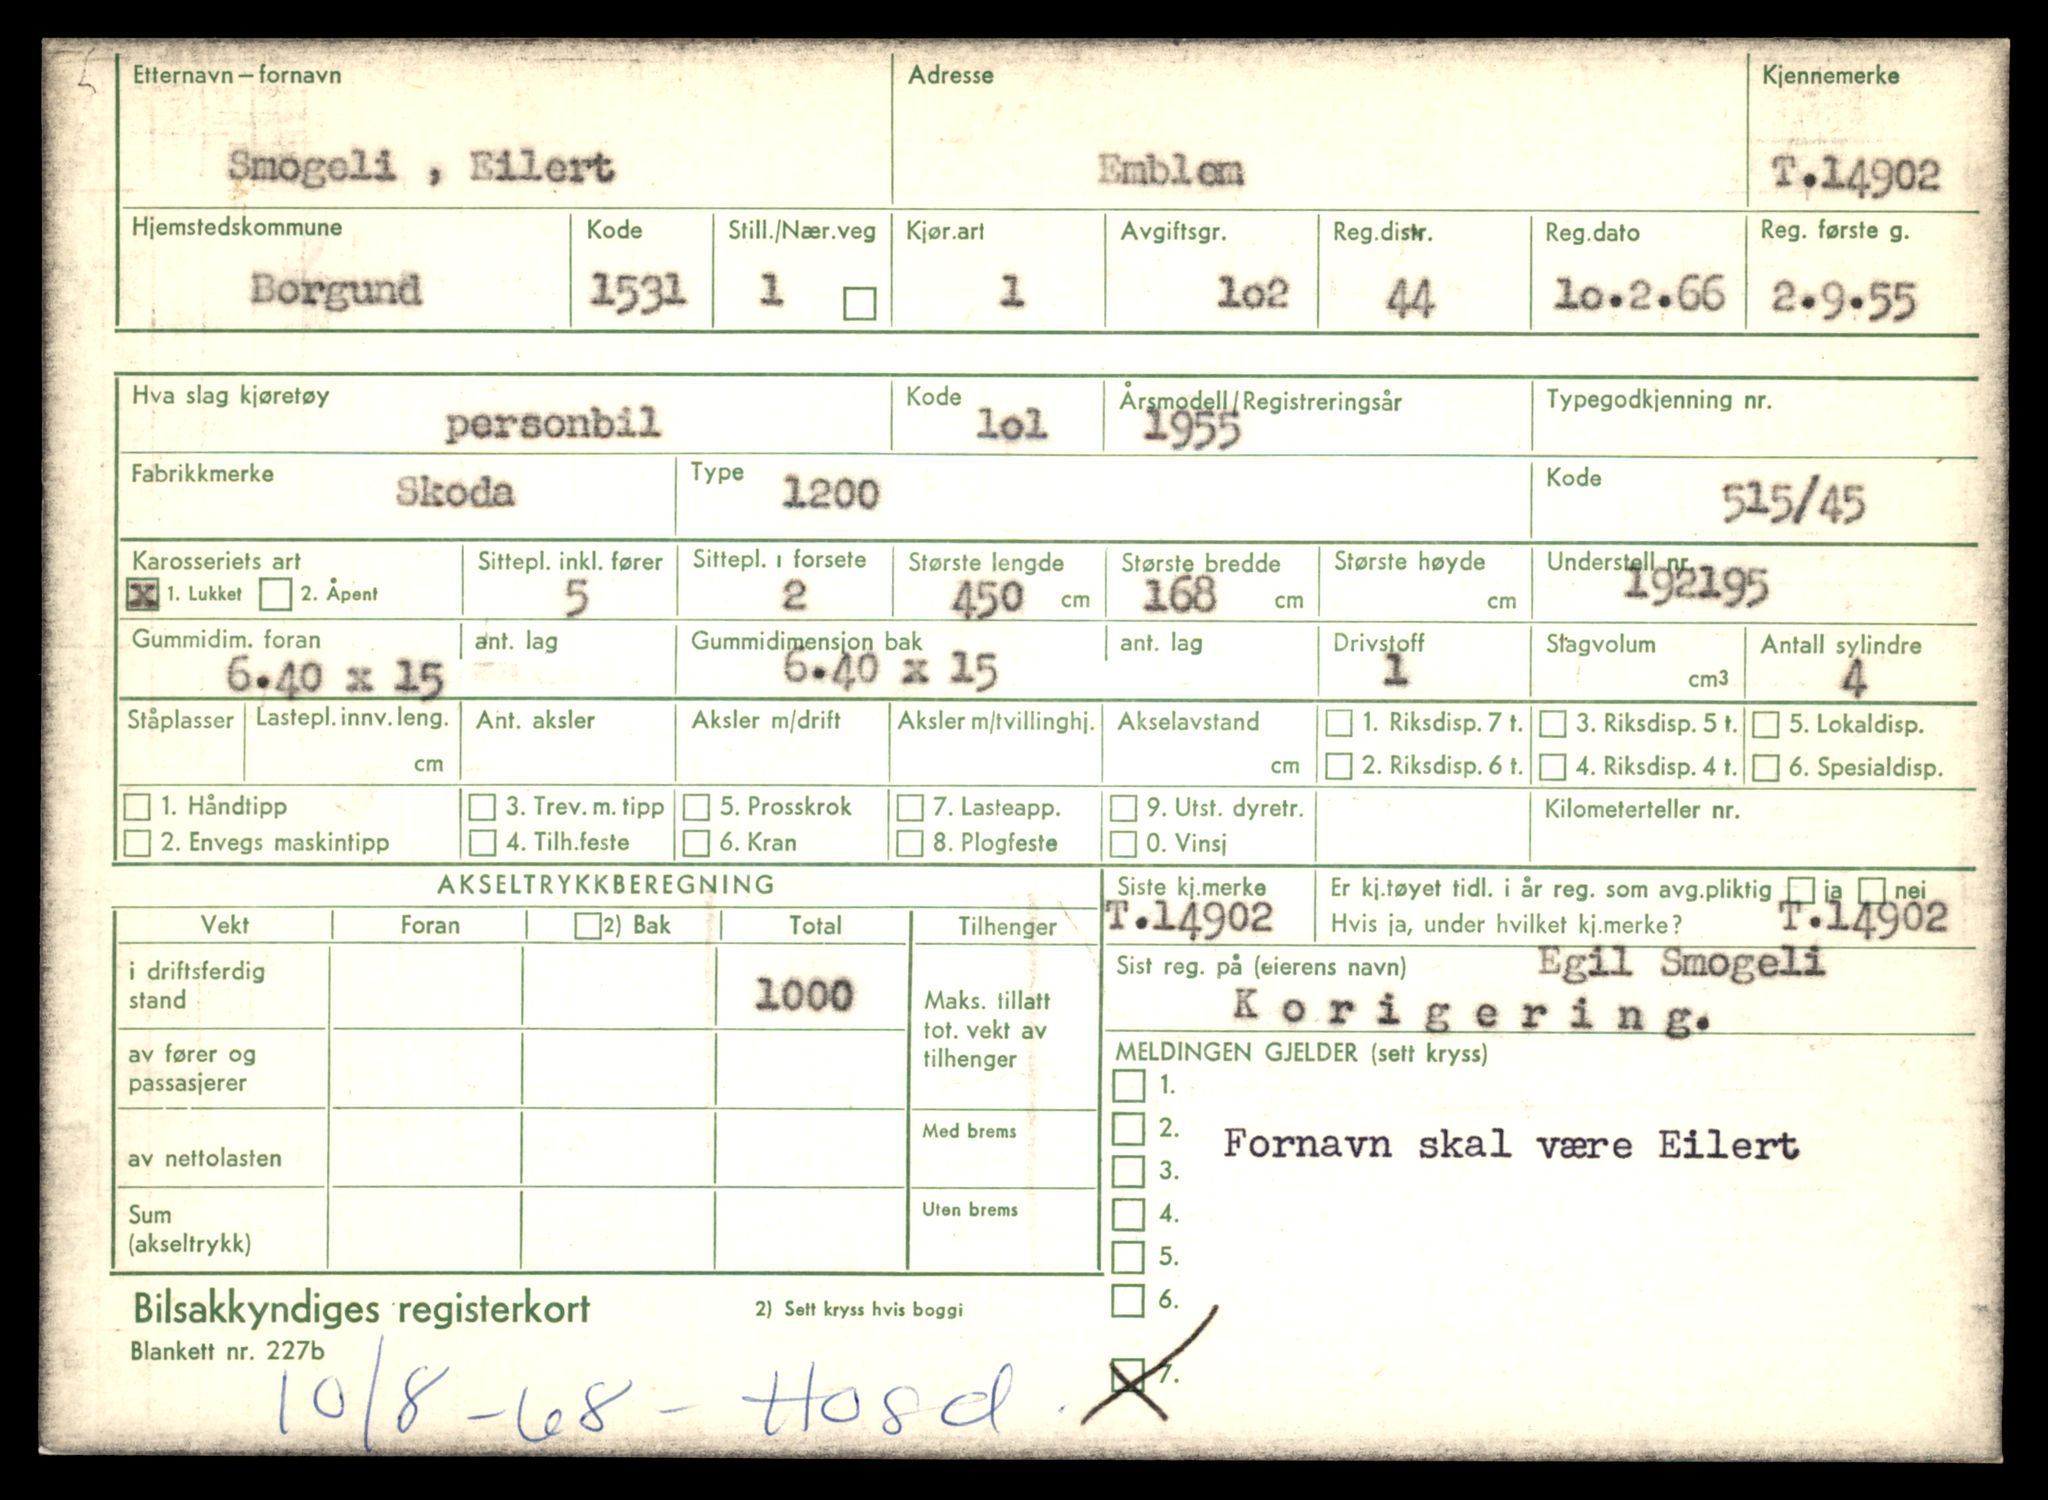 Etternavn – fornavn Adresse Kjennemerke
Smogeli , Eilert Emblem T.14902
Hjemstedskommune Kode Still./Nær.veg Kjør.art Avgiftsgr. Reg.distr. Reg.dato Reg. første g.
Borgund 1531 1 1 lo2 44 lo.2.66 2.9.55
Hva slag kjøretøy Kode Årsmodell/Registreringsår Typegodkjenning nr.
personbil lol 1955
Fabrikkmerke Type Kode
Skoda 1200 515/45
Karosseriets art Sittepl. inkl. fører Sittepl. i forsete Største lengde Største bredde Største høyde Understell nr.
x 1. Lukket 2. Åpent 5 2 450 cm 168 cm cm 192195
Gummidim. foran ant. lag Gummidimensjon bak ant. lag Drivstoff Slagvolum Antall sylindre
6.40 x 15 6.40 x 15 1 cm3 4
Ståplasser Lastepl. innv. leng. Ant. aksler Aksler m/drift Aksler m/tvillinghj. Akselavstand 1. Riksdisp. 7 t. 3. Riksdisp. 5 t. 5. Lokaldisp.
cm cm 2. Riksdisp. 6 t. 4. Riksdisp. 4 t. 6. Spesialdisp.
1. Håndtipp 3. Trev. m. tipp 5. Prosskrok 7. Lasteapp. 9. Utst. dyretr. Kilometerteller nr.
2. Envegs maskintipp 4. Tilh.feste 6. Kran 8. Plogfeste 0. Vinsj
AKSELTRYKKBEREGNING Siste kj.merke Er kj.tøyet tidl. i år reg. som avg.pliktig ja nei
Vekt Foran 2) Bak Total Tilhenger T.14902 Hvis ja, under hvilket kj.merke? T.14902
i driftsferdig stand 1000 Maks. tillatt tot. vekt av tilhenger
Sist reg. på (eierens navn) Egil Smogeli
K o r i g e r i n g.
av fører og passasjerer
MELDINGEN GJELDER (sett kryss)
1.
Med brems 2. Fornavn skal være Eilert
av nettolasten 3.
Uten brems 4.
Sum (akseltrykk) 5.
Bilsakkyndiges registerkort 2) Sett kryss hvis boggi 6.
Blankett nr. 227b 7.
10/8 - 68 - Hosd.